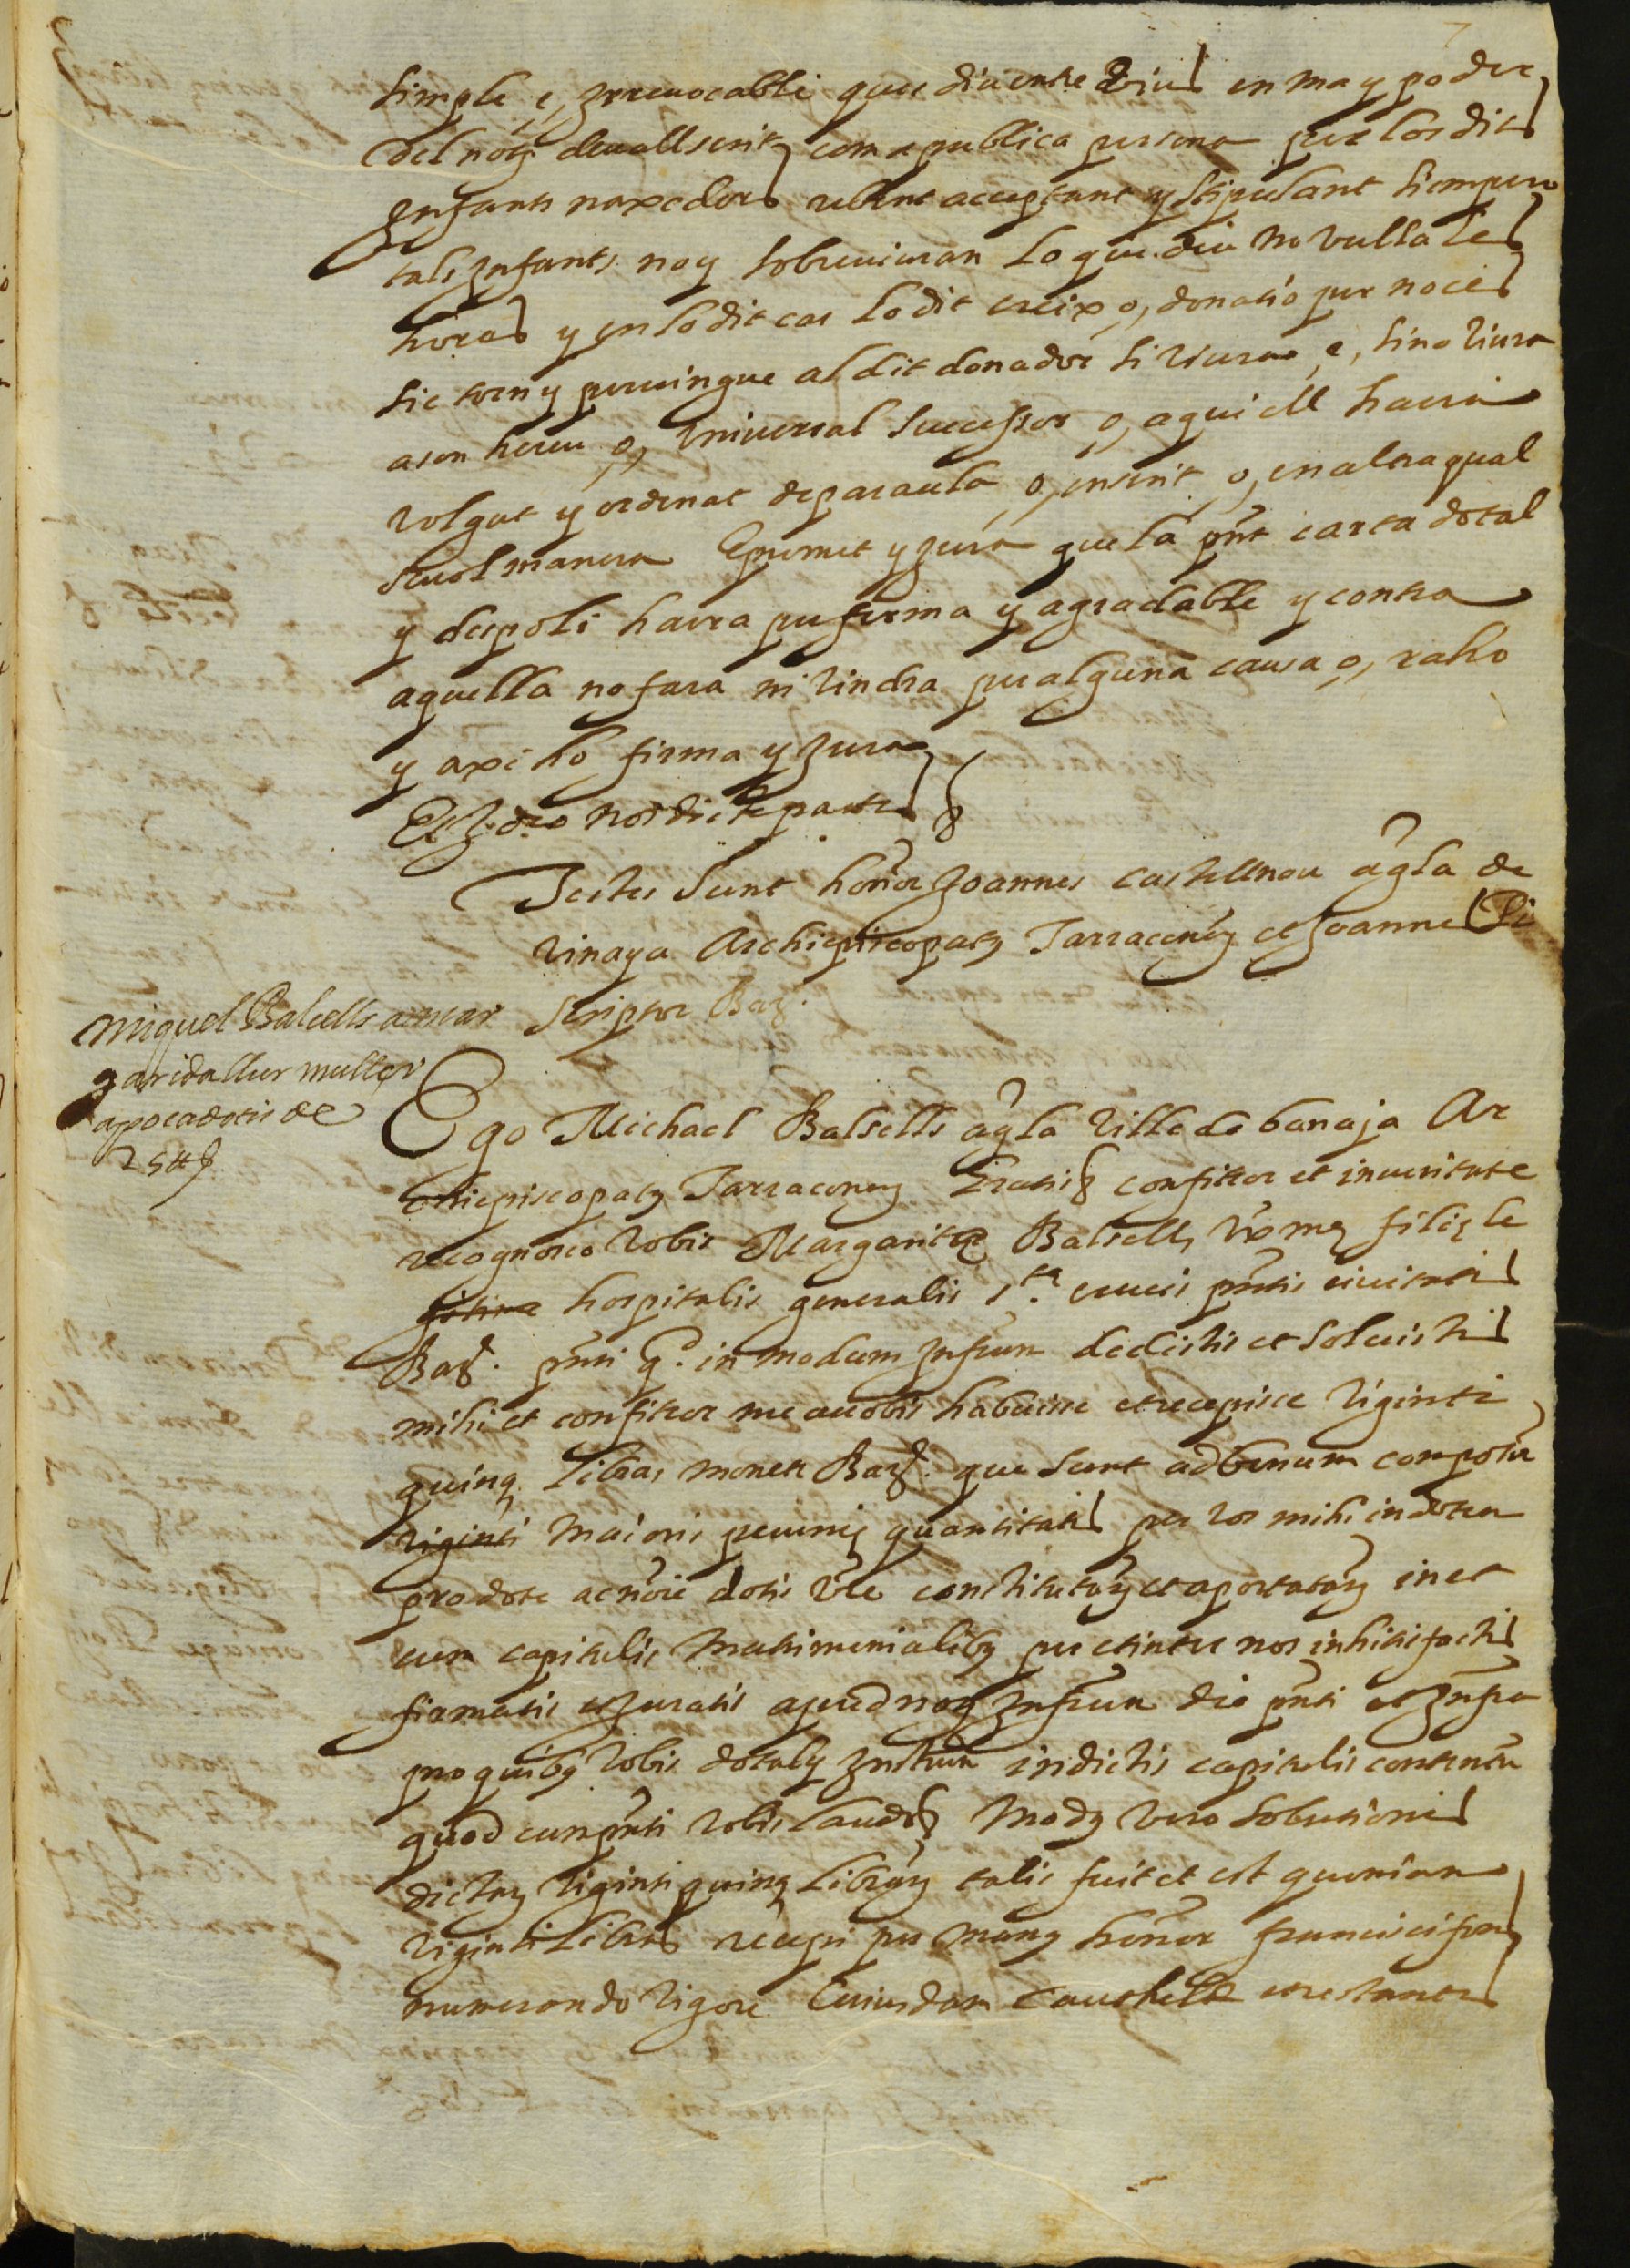 simple e, yrrevocable que diu entre vius en ma y poder
del noty devallscrit com a publica persona per los dits
Enfants naxedors rebent acceptant y stipulant si empero
tals Infants noy sobreviuran lo que deu no vulla les
horas y en lo dit cas lo dit creix o, donatio per noces
sie torn y pervingue al dit donador si viura e, sino viura
a son hereu o, universal successor o, a qui ell haura
volgut y ordenat de paraula o, en scrit o, en altra qual
sevol manera E promet y jura que la pnt carta dotal
y de spoli haura per ferma y agradable y contra
aquella no fara ni vindra per alguna causa o, raho
y axi ho firma y jura
Et ideo nos dicte partes
Testes sunt honor Joannes castellnou agla de
vinaya Archiepiscopatg Tarraconeg et Joannes
scriptor Bar.
Miquel Balcells a mar
garida llur muller
apoca dotis de
25 ₶
Ego Michael Balsells agla ville de banaja Ar
chiepiscopatg Tarraconeg Gratis confiteor et in veritate
recognosco vobis Margarite Balsells uxori meę filię le
gitima hospitalis generalis s.te crucis pntis civitatis
Bar. pnti q. in modum infrum dedistis et solvistis
mihi et confiteor me a vobis habuisse et recepisse viginti
quinq libras monete Bar. que sunt ad bonum compotu
viginti maioris pecunię quantitatis per vos mihi in dotem
pro dote ac noie dotis vre constitutag et aportatag in et
cum capitulis matrimonialibg per et inter nos inhitis factis
firmatis et juratis apud noty infrum die pnti et infra
pro quibg vobis dotalg instrum in dictis capitulis contentu
quod cum pnti vobis laudo Modg vero solutionis
dictag viginti quinq librag talis fuit et est quoniam
viginti libras recepi per mang honor francisci fon
numerando vigore cuiusdam cauthele et restantes